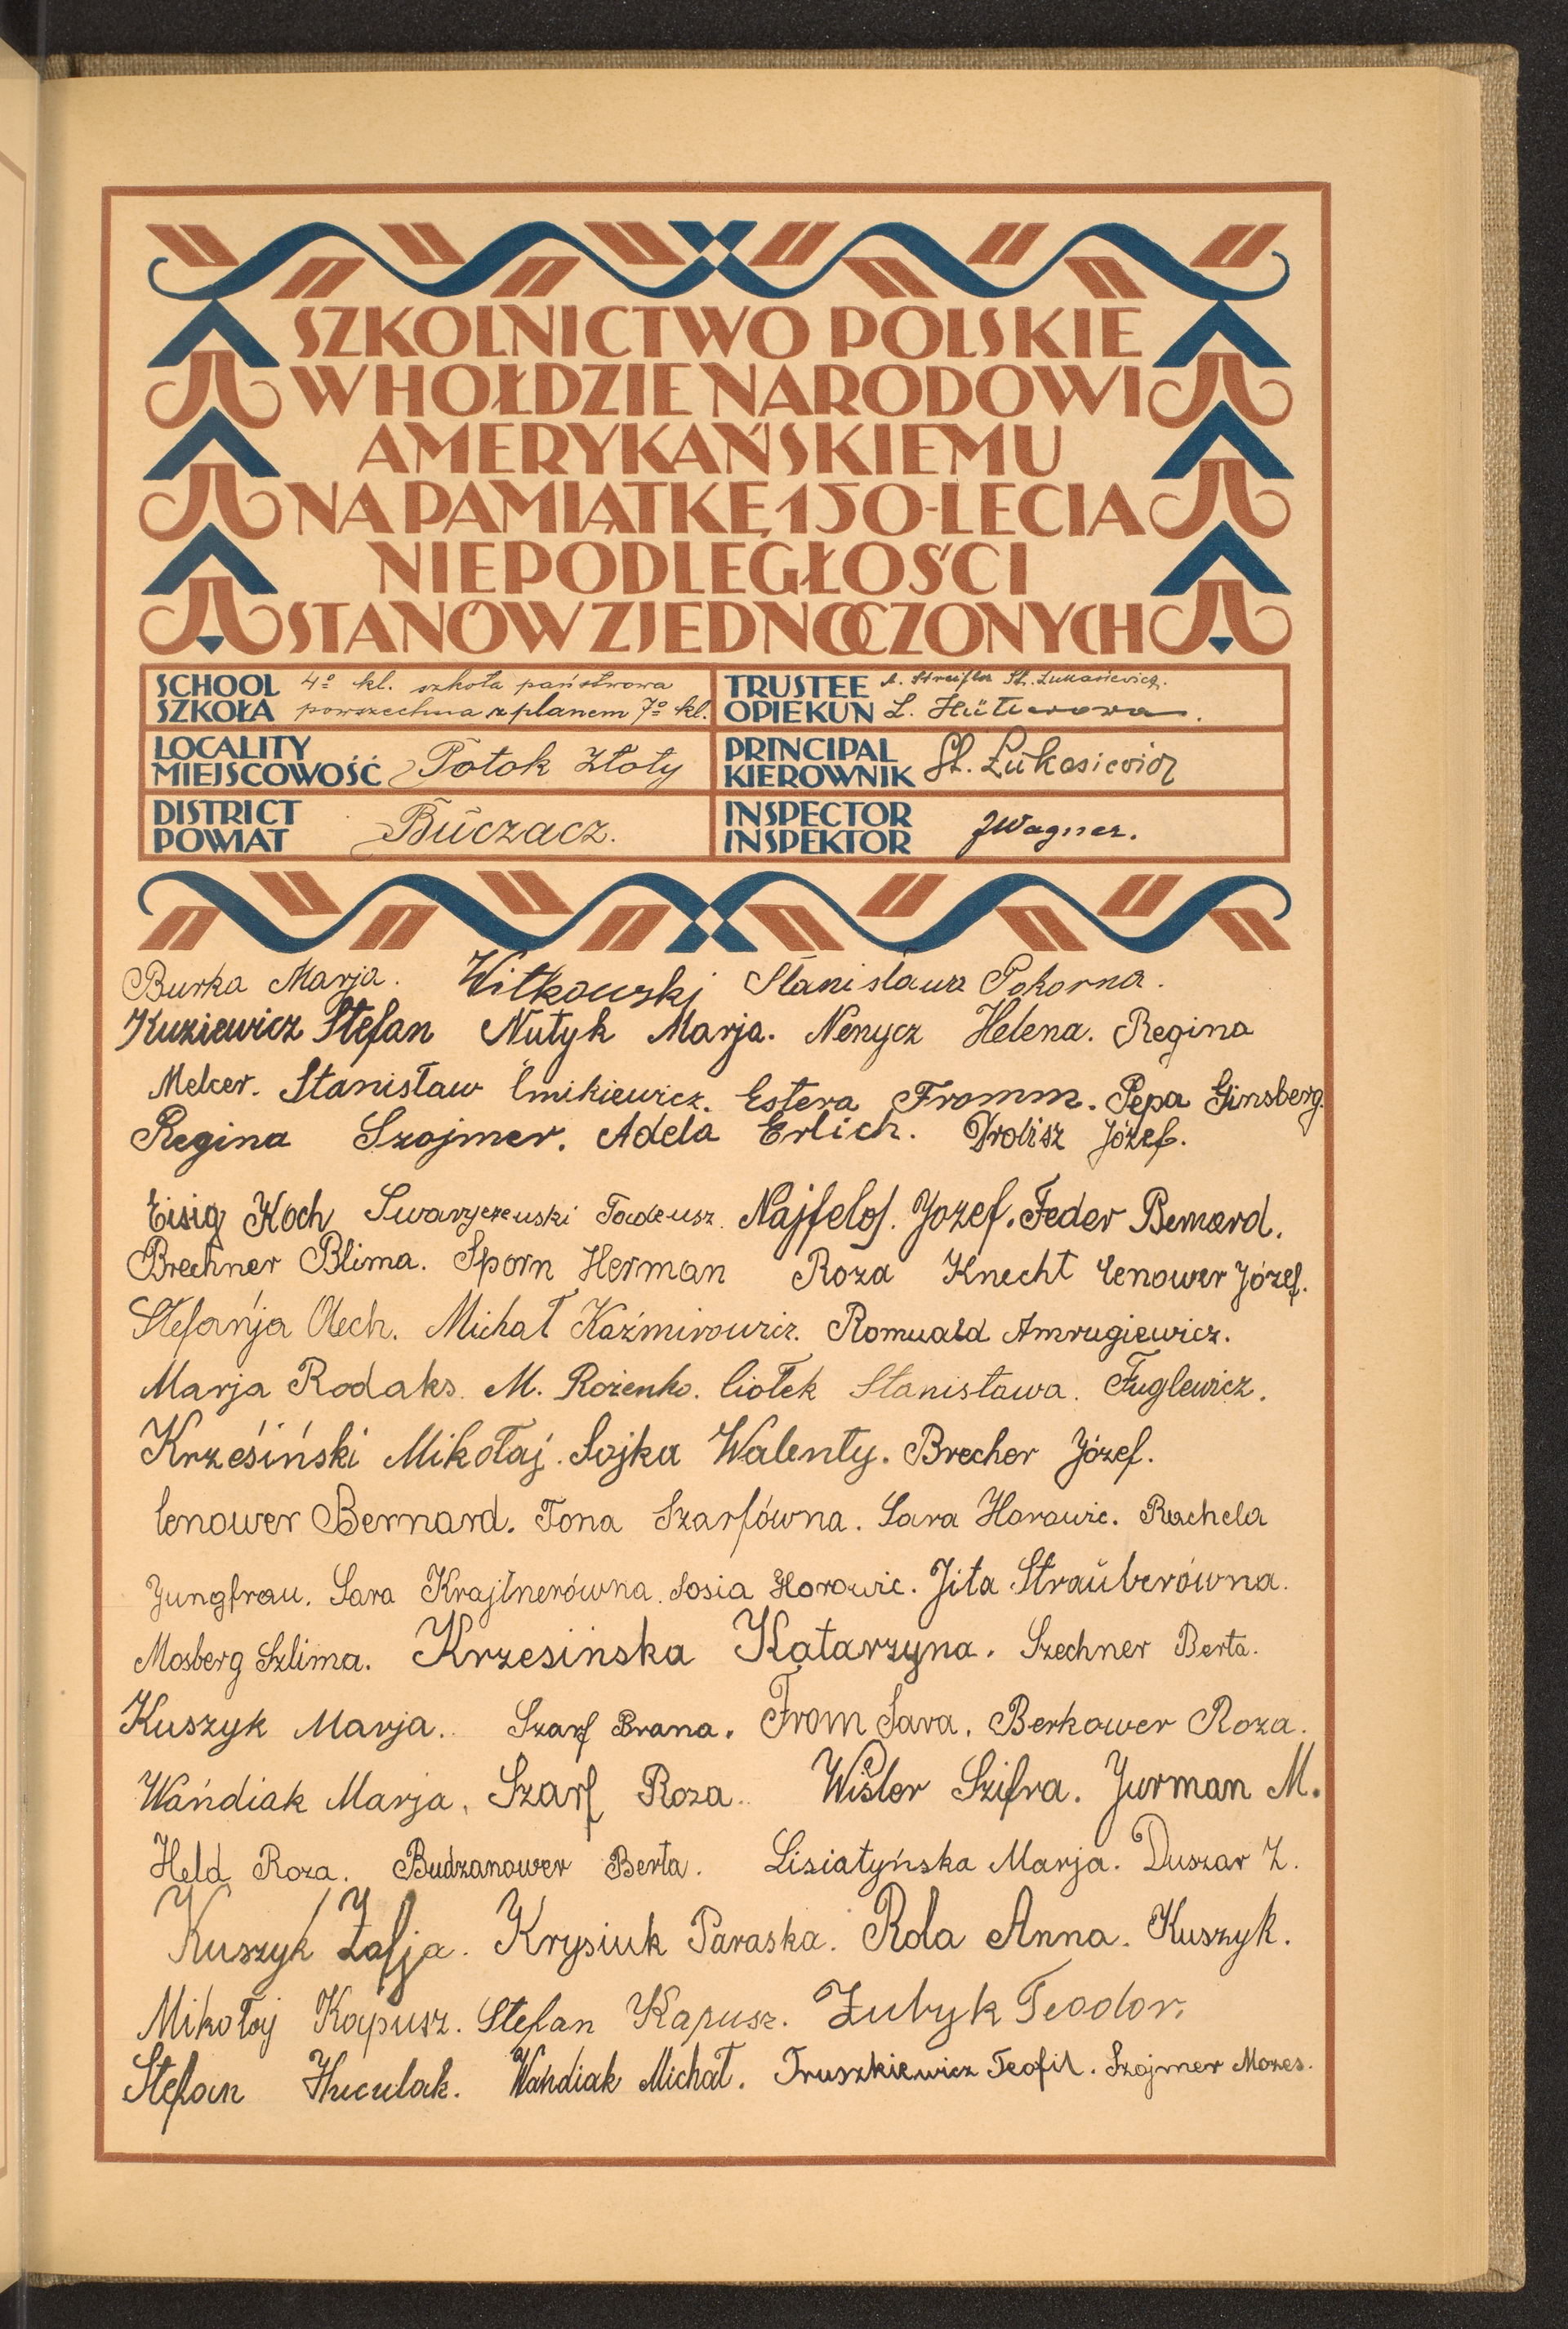 SZKOLNICTWO POLSKIE
W HOŁDZIE NARODOWI
AMERYKAŃSKIEMU
NA PAMIĄTKĘ 150-LECIA
NIEPODLEGŁOŚCI
STANÓW ZJEDNOCZONYCH
SCHOOL 4º kl. szkoła państwowa
SZKOŁA powszechna z planem 7º kl.
TRUSTEE St. Łukasiewicz.
OPIEKUN L.
LOCALITY
MIEJSCOWOŚĆ Potok Złoty
PRINCIPAL
KIEROWNIK St. Łukasiewicz
DISTRICT
POWIAT Buczacz.
INSPECTOR
INSPEKTOR JWagner.
Burka Marja. Witkowski Stanisława Pokorna.
Kuziewicz Stefan Nutyk Marja. Nenycz Helena. Regina
Melcer. Stanisław Ćmikiewicz. Estera Fromm. Pepa Ginsberg.
Regina Szojmer. Adela Erlich. Józef.
Eisig Koch Swaryczewski Tadeusz. Najfeld. Jozef. Feder Bernard.
Brechner Blima. Sporn Herman Roza Knecht Cenower Józef.
Stefanja Olech. Michał Kaźmirowicz. Romuald Amrugiewicz.
Marja Rodaks. M. Rożenko. Ciołek Stanisława. Fuglewicz.
Krzesiński Mikołaj. Sojka Walenty. Brecher Józef.
Cenower Bernard. Tona Szarfówna. Sara Horowic. Rachela
Jungfrau. Sara Krajtnerówna. Sosia Horowic. Jita Strauberówna.
Mosberg Szlima. Krzesińska Katarzyna. Szechner Berta.
Kuszyk Marja. Szarf Brana. From Sara. Berkower Roza.
Wańdiak Marja. Szarf Roza. Wisler Szifra. Jurman M.
Held Roza. Budzanower Berta. Lisiatyńska Marja. Duszar Z.
Kuszyk Zofja. Krysiuk Paraska. Rola Anna. Kuszyk.
Mikołaj Kapusz. Stefan Kapusz. Zubyk Teodor.
Stefan Huculak. Wańdiak Michał. Truszkiewicz Teofil. Szojmer Mozes.